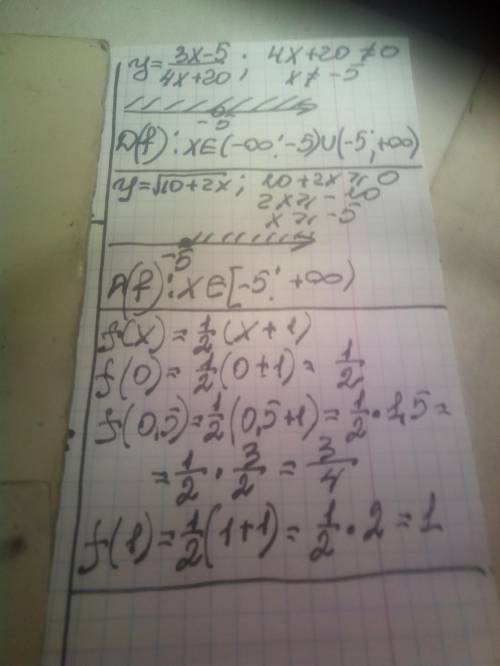 y = \frac{3x-5}{4x+20}; 4x+20 ≠ 0
x ≠ -5
-5
D(f): x∈(-∞; -5)∪(-5; +∞)
y = √10+2x; 10+2x ≥ 0
2x ≥ -10
x ≥ -5
-5
D(f): x∈[-5; +∞)
f(x) = \frac{1}{2}(x+1)
f(0) = \frac{1}{2}(0+1) = \frac{1}{2}
f(0,5) = \frac{1}{2}(0,5+1) = \frac{1}{2} · 1,5 =
= \frac{1}{2} · \frac{3}{2} = \frac{3}{4}
f(1) = \frac{1}{2}(1+1) = \frac{1}{2} · 2 = 1